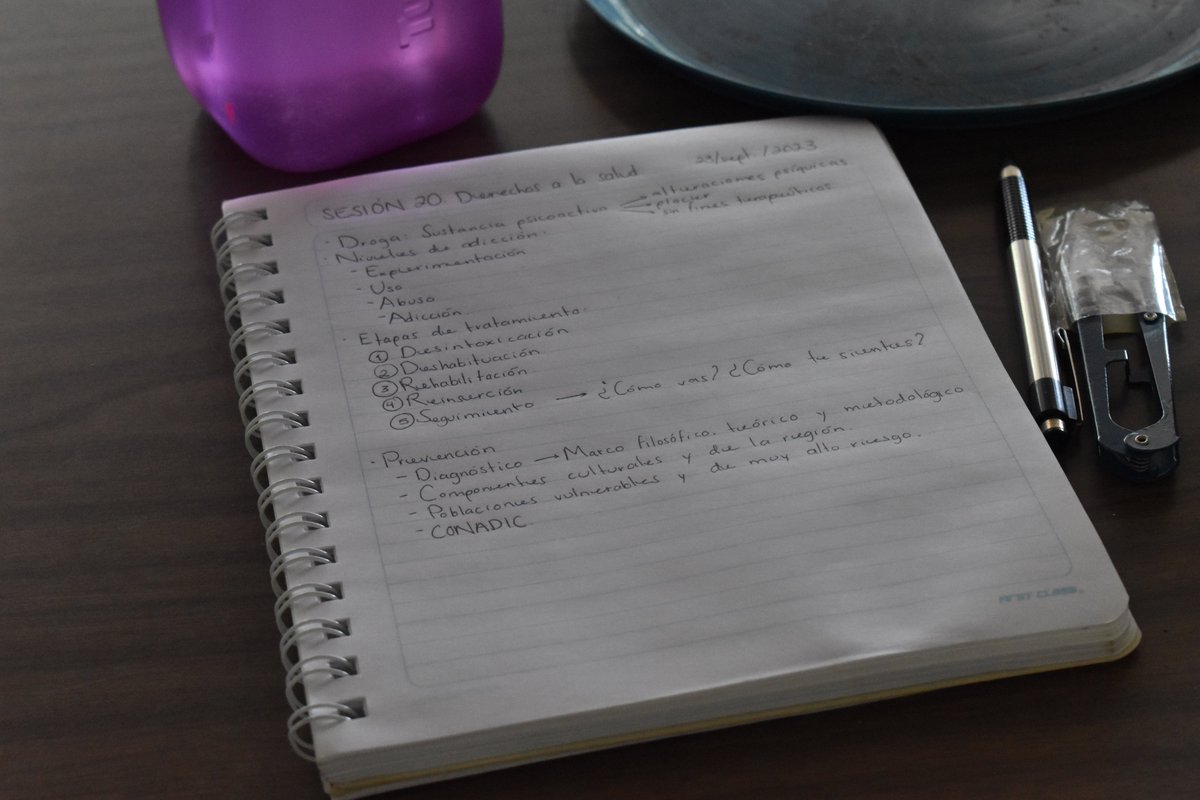 SESIÓN 20. Derechos a la salud. 23/sept./2023
· Droga: Sustancia psicoactiva
alteraciones psíquicas
placer
sin fines terapeúticos.
· Niveles de adicción:
- Experimentación
- Uso
- Abuso
- Adicción.
· Etapas de tratamiento:
① Desintoxicación
② Deshabituación.
③ Rehabilitación
④ Reinserción
⑤ Seguimiento → ¿Cómo vas? ¿Cómo te sientes?
· Prevención
- Diagnóstico → Marco filosófico, teórico y metodológico
- Componentes culturales y de la región.
- Poblaciones vulnerables y de muy alto riesgo.
- CONADIC
FIRST CLASS